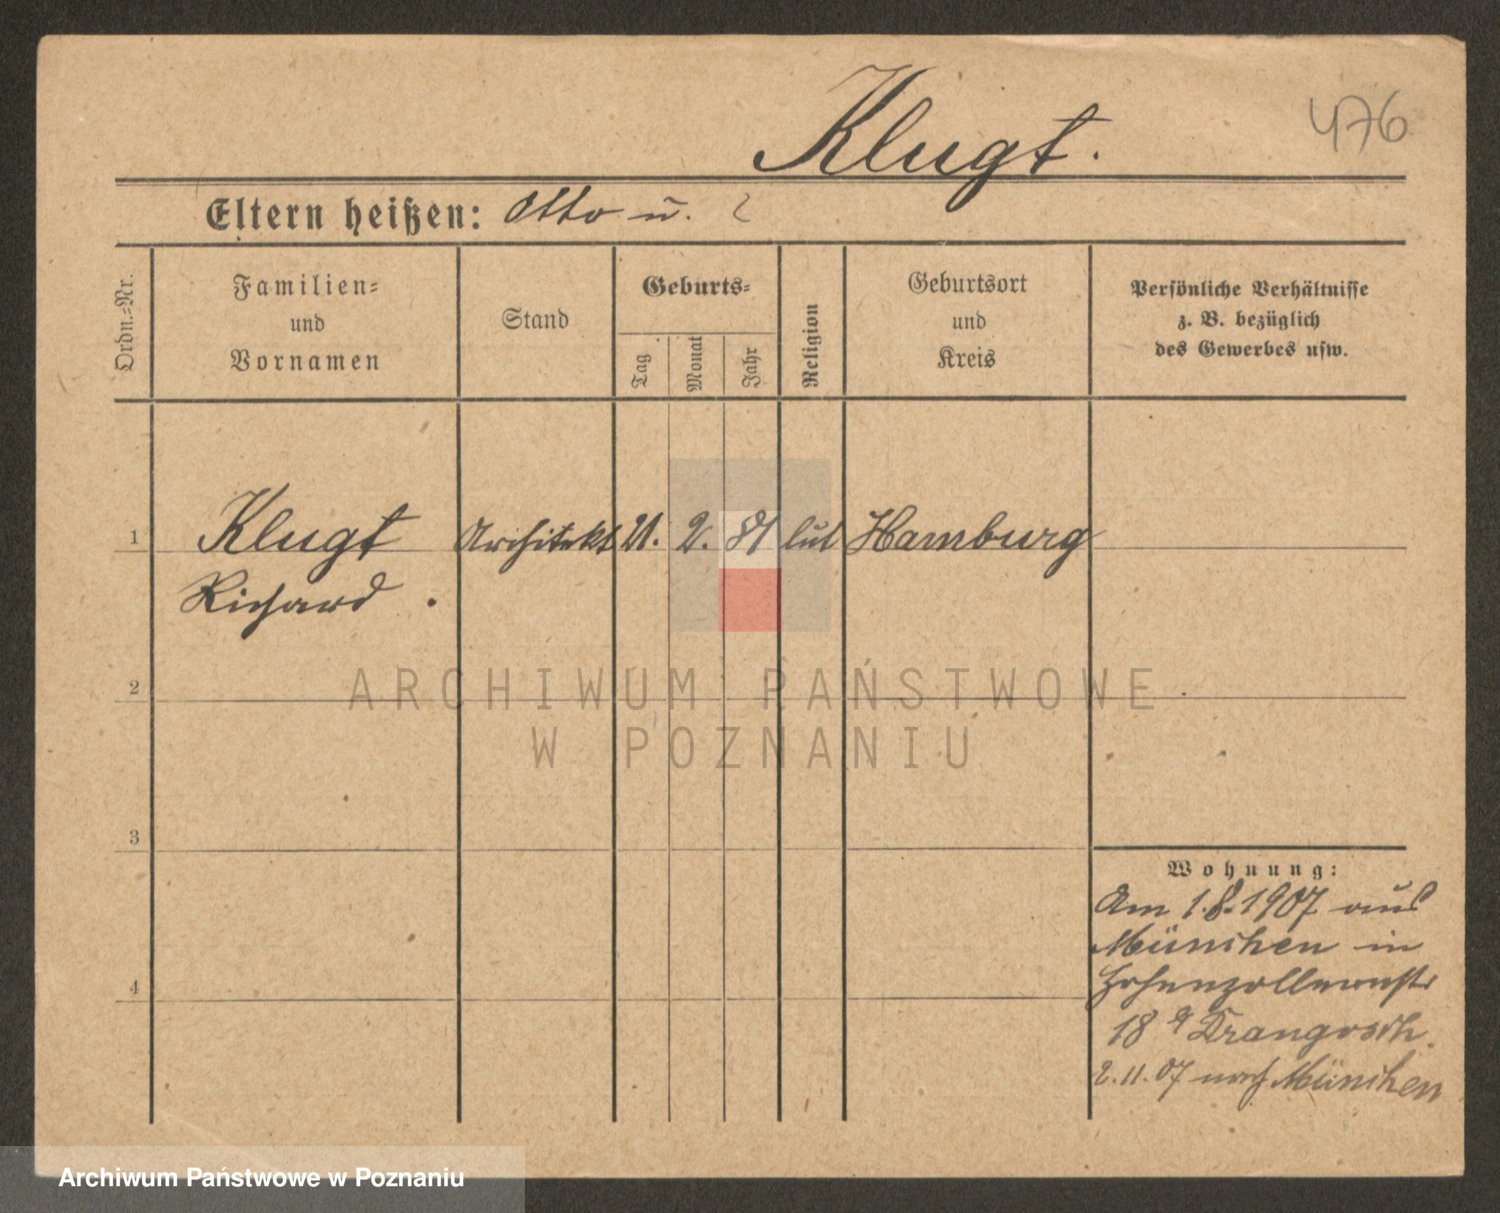 476
Klugt.
Eltern heißen: Otto u. ?
Ordn.=Nr.
Familien=
und
Vornamen
Stand
Geburts=
Tag
Monat
Jahr
Religion
Geburtsort
und
Kreis
Persönliche Verhältnisse
z. B. bezüglich
des Gewerbes usw.
1 Klugt Architekt 21. 2. lut Hamburg
Richard.
ARCHIWUM PAŃSTWOWE
W POZNANIU
2
3
4
Wohnung:
Am 1.8.1907 aus
München in
Hohenzollernstr
18 Drangosch.
2.11.07 nach München
Archiwum Państwowe w Poznaniu